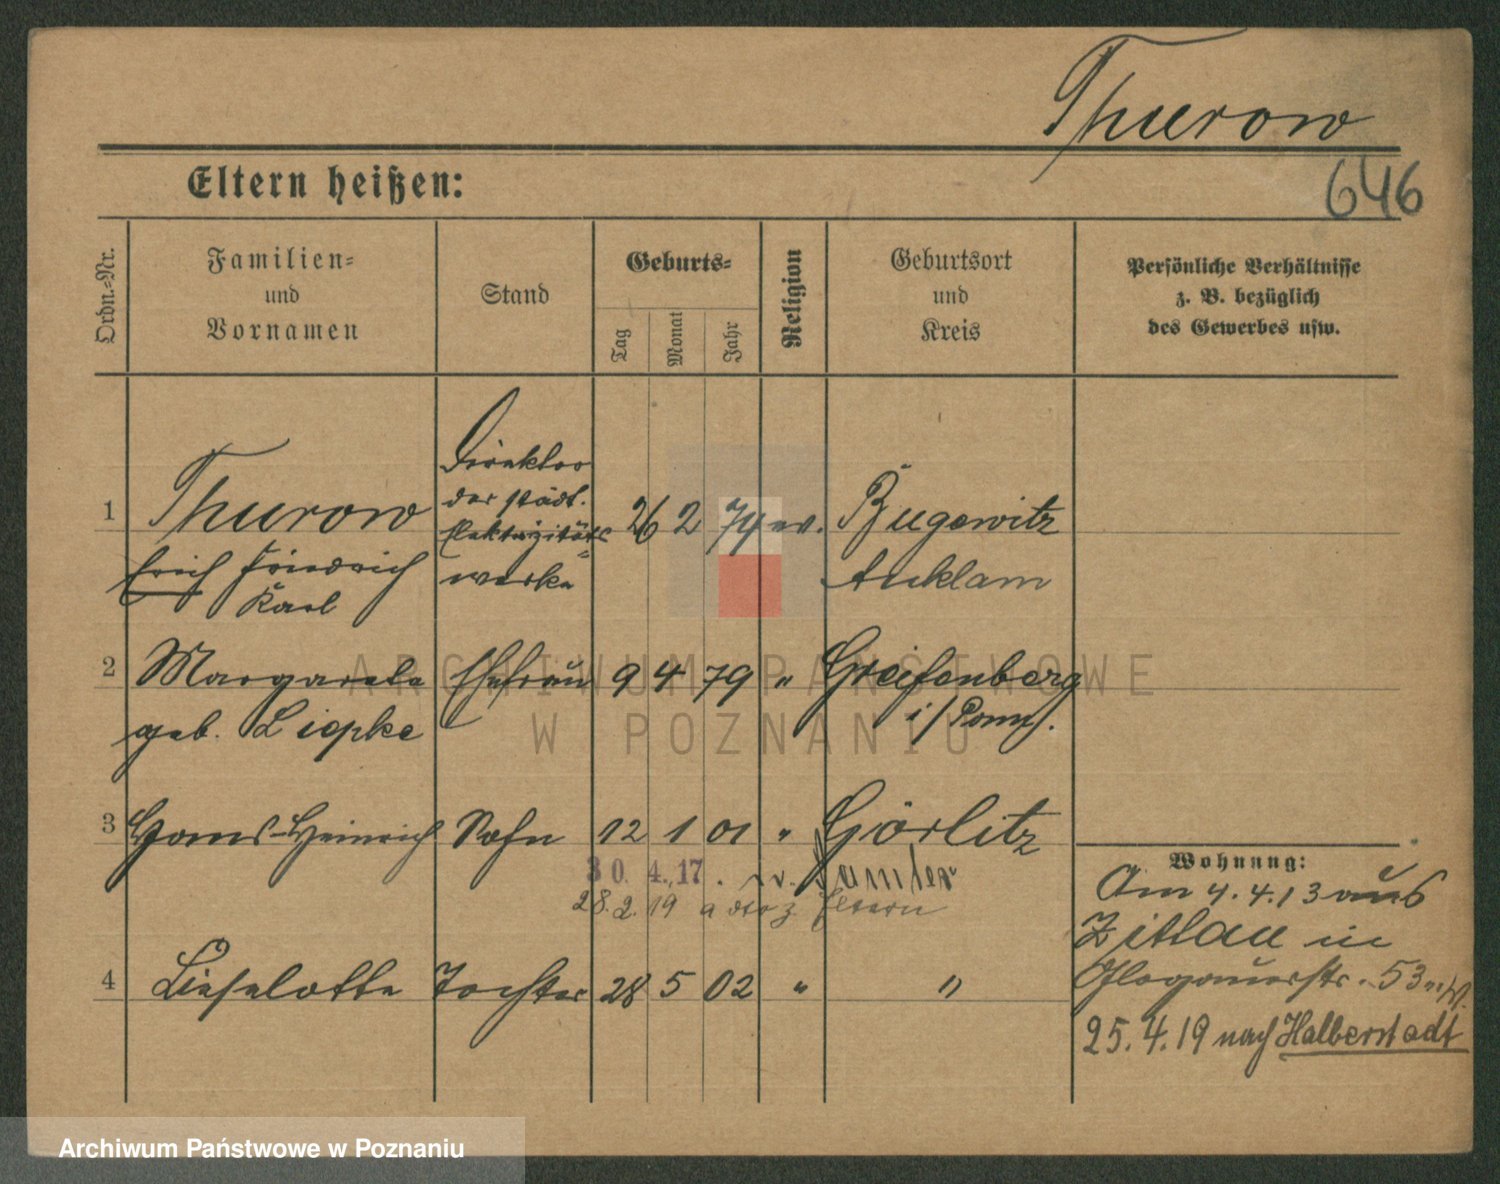 Thurow
646
Eltern heißen:
Ordn.-Nr.
Familien-
und
Vornamen
Stand
Geburts-
Tag
Monat
Jahr
Religion
Geburtsort
und
Kreis
Persönliche Verhältnisse
z. B. bezüglich
des Gewerbes usw.
1
Thurow
Erich Friedrich
Karl
Direktor
der städt.
Elektrizitäts-
werke
26 2 74 ev.
Bugewitz
Anklam
2
Margarete
geb. Liepke
Ehefrau
9 4 79 "
Greifenberg
i/Pomm.
3
Hans-Heinrich
Sohn
12 1 01 "
Görlitz
30. 4. 17. v. Samter
28.2.19 Eltern
4
Lieselotte
Tochter
28 5 02 "
"
Wohnung:
Am 4.4.13 aus
Zittau in
Glogauerstr. 53
25.4.19 nach Halberstadt
ARCHIWUM PAŃSTWOWE
W POZNANIU
Archiwum Państwowe w Poznaniu